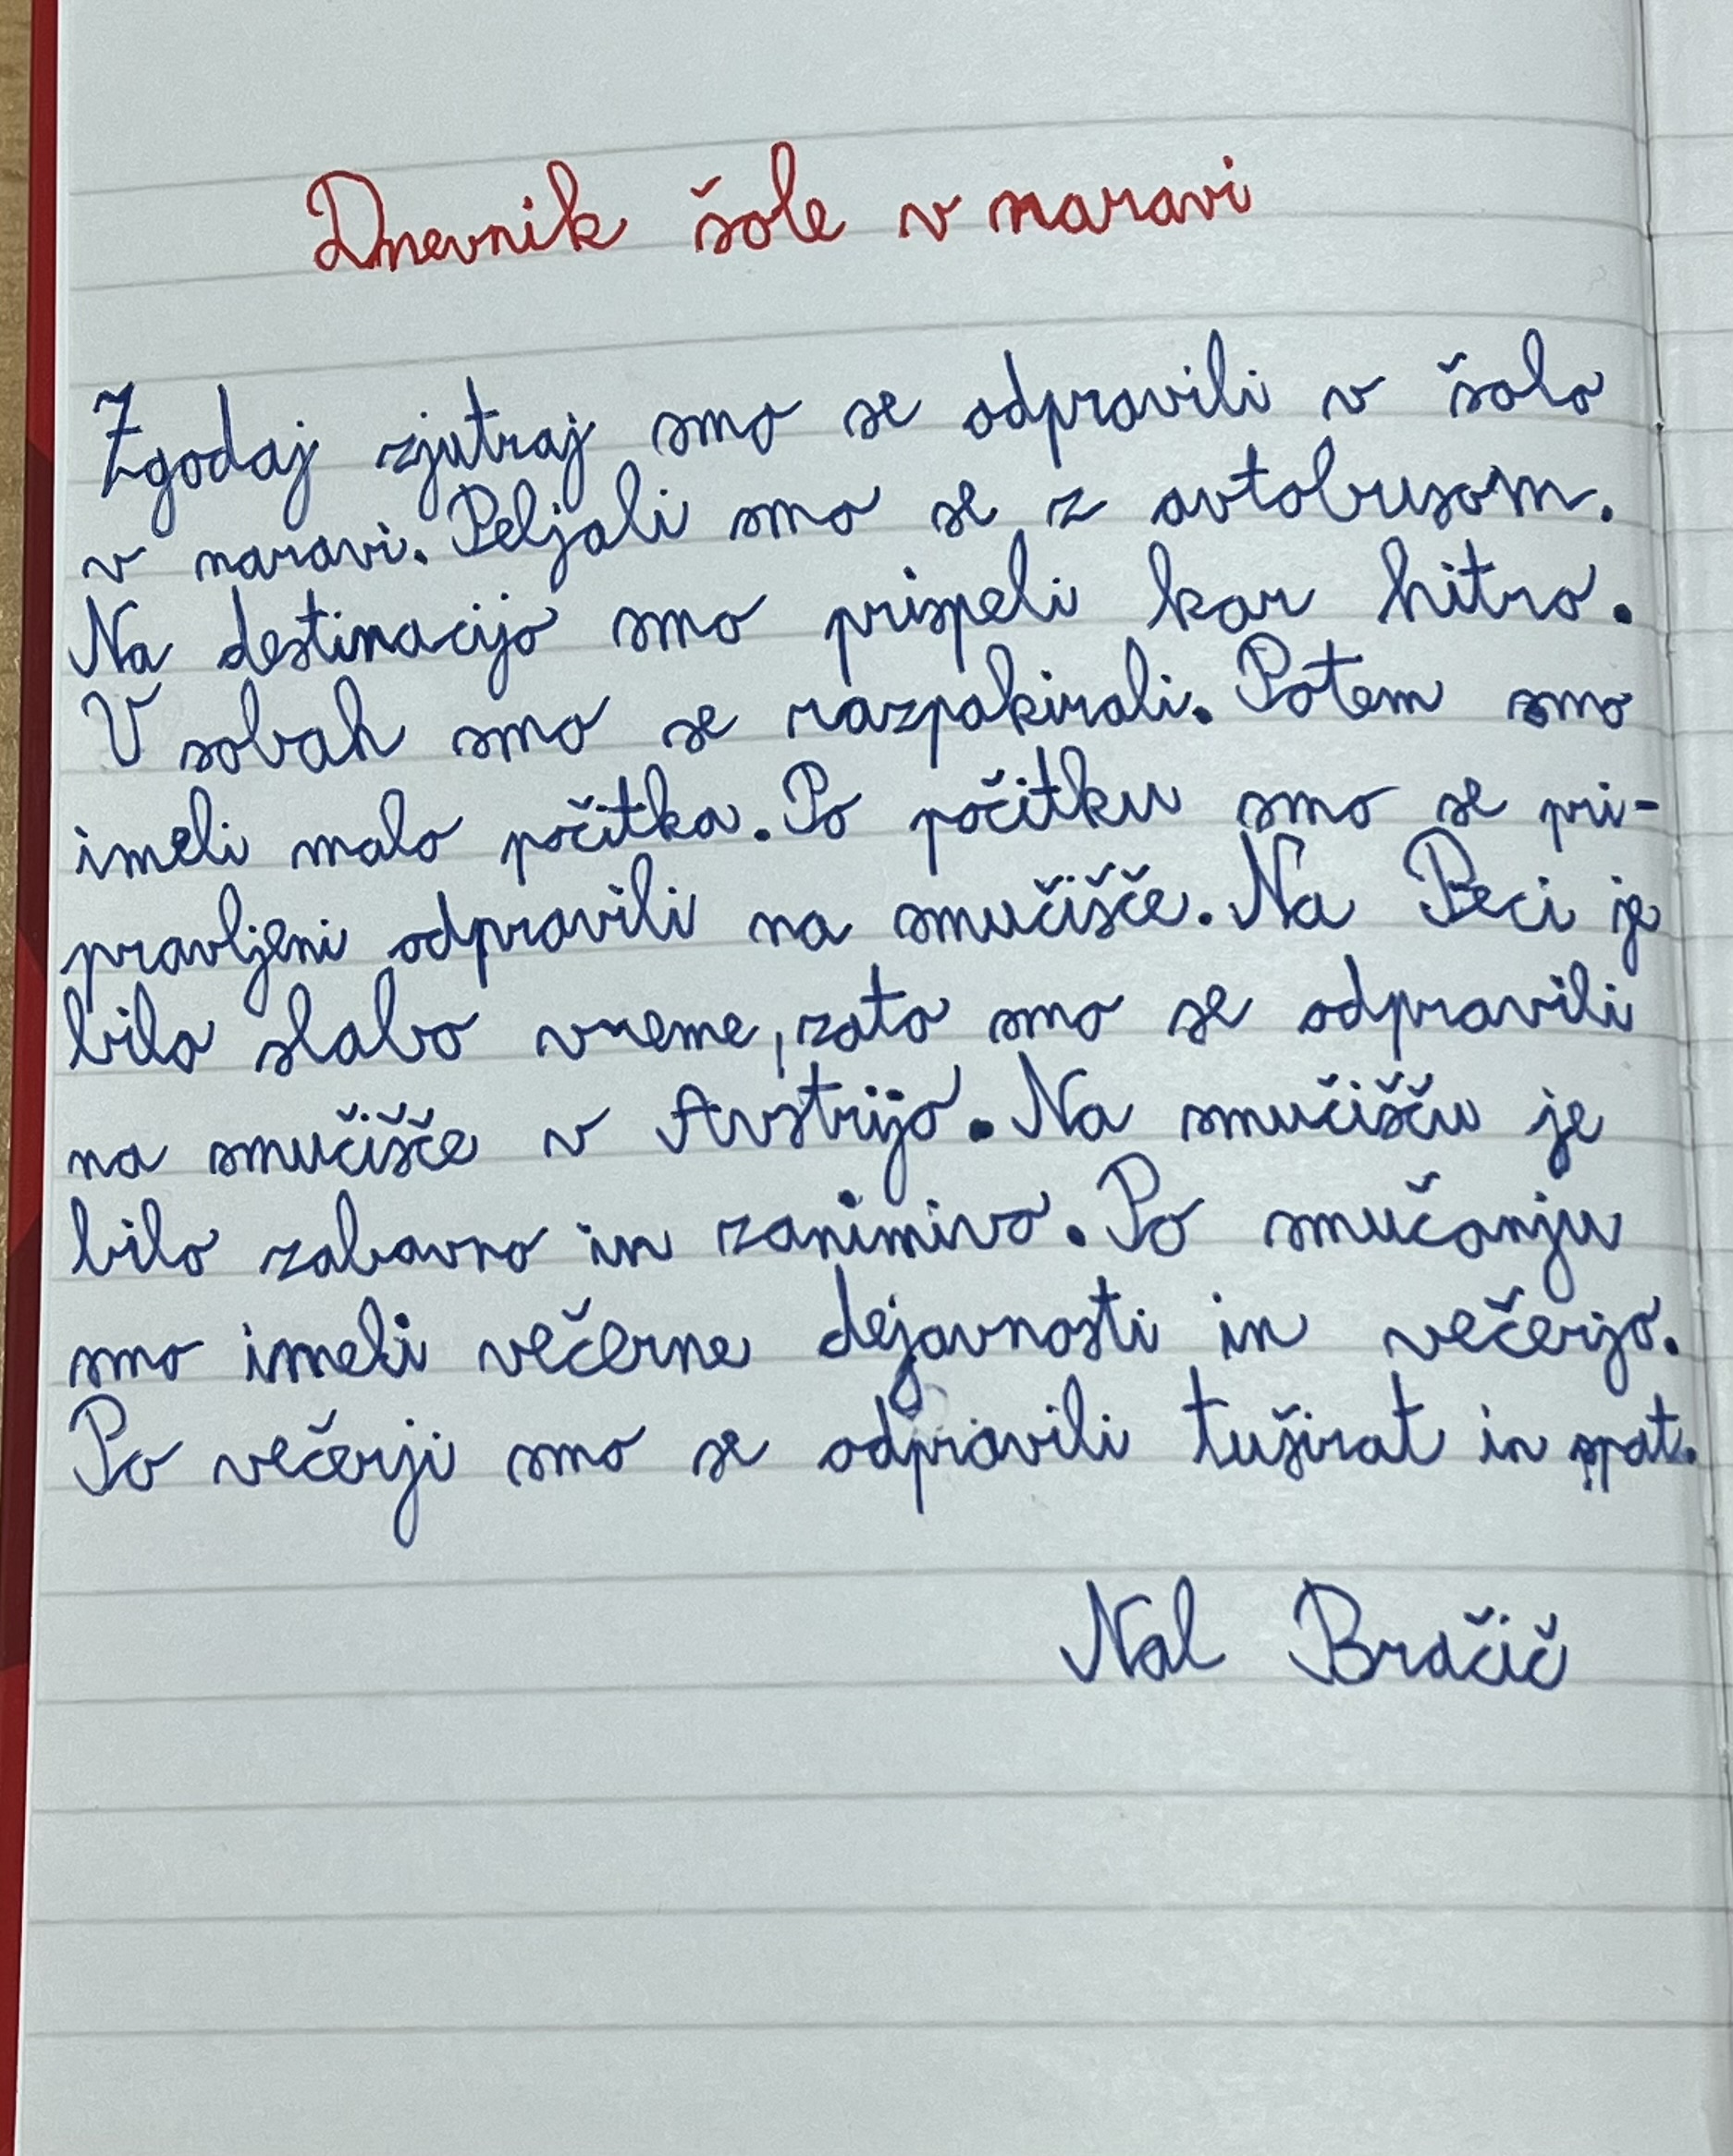 Dnevnik šole v naravi
Zgodaj zjutraj smo se odpravili v šolo
v naravi. Peljali smo se z avtobusom.
Na destinacijo smo prispeli kar hitro.
V sobah smo se razpakirali. Potem smo
imeli malo počitka. Po počitku smo se pri-
pravljeni odpravili na smučišče. Na Peci je
bilo slabo vreme, zato smo se odpravili
na smučišče v Avstrijo. Na smučišču je
bilo zabavno in zanimivo. Po smučanju
smo imeli večerne dejavnosti in večerjo.
Po večerji smo se odpravili tuširat in spat.
Nal Bračič